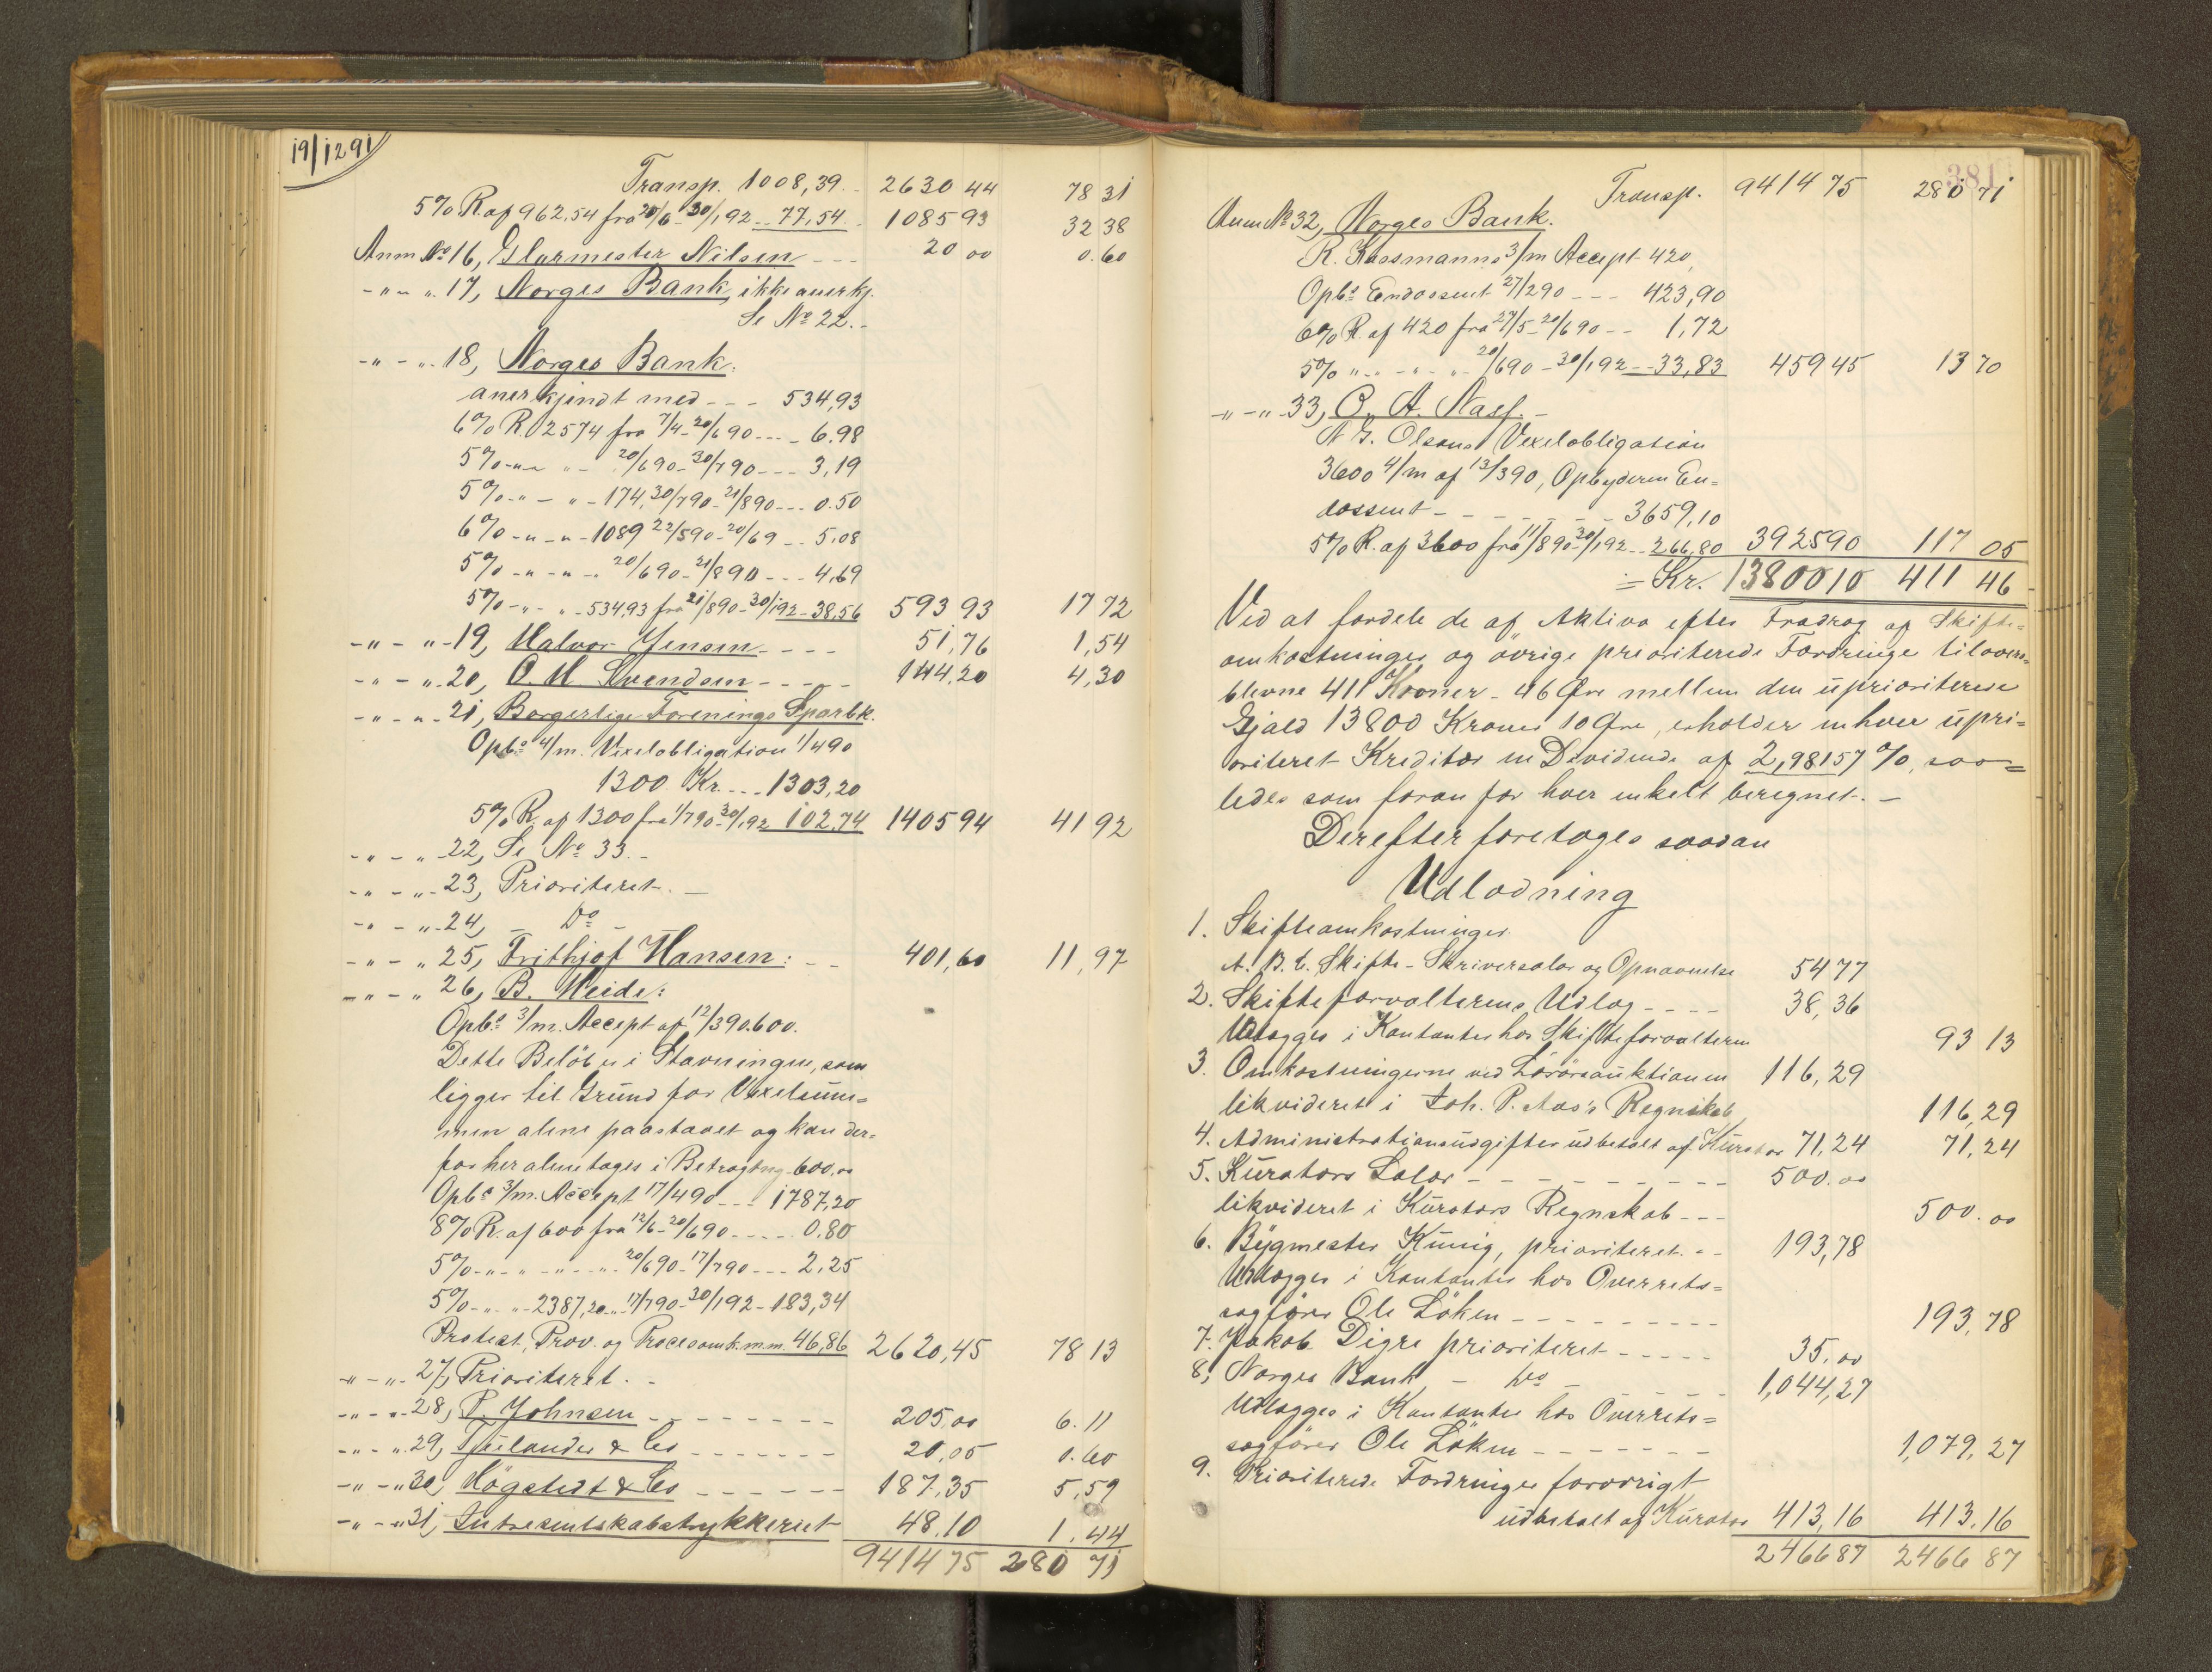 19/12 91
Transp. 1008,39. 2630 44 78 31
5% R af 962,54 fra 20/6 - 30/1 92 - 77,54 1085 93 32 38
Anm No 16, Glarmester Nilsen - - - 20 00 0.60
- " - " 17, Norges Bank, ikke anerkj.
Se No 22. -
- " - " 18, Norges Bank:
anerkjendt med - - - 534,93
6% R. 2574 fra 7/4 - 20/6 90 - - - 6.98
5% - " - " - 20/6 90 - 30/7 90 - - - 3,19
5% - " - " - 174, 30/7 90 - 21/8 90 - - - 0.50
6% - " - " - 1089 22/5 90 - 20/6 9 - - 5,08
5% - " - " - 20/6 90 - 21/8 90 - - - 4,69
5% - " - " - 534,93 fra 21/8 90 - 30/1 92 - 38,56 593 93 17 72
- " - " - 19, Halvor Jensen - - - 51,76 1,54
- " - " 20, O. M. Svendsen - - - - 144,20 4,30
- " - " 21, Borgerlige Forenings Sparbk.
Opbs 4/m. Vexelobligation 1/4 90
1300 Kr. - - - 1303,20
5% R. af 1300 fra 1/7 90 - 30/1 92 102,74 1405 94 41 92
- " - " 22, Se No 33. -
- " - " 23, Prioriteret. -
- " - " 24, - Do -
- " - " 25, Frithjof Hansen: - - 401,60 11,97
- " - " 26, B. Weide:
Opbs 3/m. Accept af 12/3 90. 600.
Dette Belöb er i Stavningen, som
ligger til Grund for Vexelsum=
men alene paastaaet og kan der=
for her alene tages i Betragtng. 600,00
Opbs 3/m. Accept 17/4 90 - - - 1787,20
8% R. af 600 fra 12/6 - 20/6 90 - - - - 0.80
5% - " - " - " - " 20/6 90 - 17/7 90 - - - 2,25
5% - " - " - 2387,20 " 17/7 90 - 30/1 92 - 183,34
Protest, Prov. og Procesomk. m.m. 46,86 2620,45 78 13
- " - " 27, Prioriteret. -
- " - " 28, P. Johnsen - - - - - - - 205,00 6.11
- " - " 29, & Co - - - - - - 20,05 0.60
- " - " 30, Högstedt & Co - - - - - - 187,35 5,59
- " - " 31, Intresentskabstrykkeriet 48,10 1.44
9414 75 280 71
381
Transp. 9414 75 280 71
Anm No 32, Norges Bank.
R. Kossmanns 3/m Accept 420,
Opbs Endossent 27/2 90 - - - 423,90
6% R. af 420 fra 27/5 - 20/6 90 - - 1,72
5% " - " - " - " 20/6 90 - 30/1 92 - - 33,83 459 45 13 70
- " - " 33, O. A. Næss. -
N J. Olsens Vexelobligation
3600 4/m af 13/3 90, Opbyderen En=
dossent - - - - - - - 3659,10
5% R. af 3600 fra 11/8 90 - 30/1 92 - 266,80 3925 90 117 05
= Kr. 13800 10 411 46
Ved at fordele de af Aktiva efter Fradrag af Skifte=
omkostninger og övrige prioriterede Fordringer tilovers=
blevne 411 Kroner - 46 Øre mellem den uprioriterede
Gjæld 13800 Kroner 10 Øre, erholder enhver upri=
oriteret Kreditor en Dividende af 2,98157 %, saa=
ledes som foran for hver enkelt beregnet. -
Derefter foretages saadan
Udlodning
1. Skifteomkostninger.
A. B. C. Skifte - Skriversalær og Opnævnelse 54 77
2. Skifteforvalterens Udlæg - - - - 38,36
Udlægges i Kontanter hos Skifteforvalteren 93 13
3. Omkostningerne ved Lösöreauktionen 116,29
likvideret i Joh. P. Aas's Regnskab 116,29
4. Administrationsudgifter udbetalt af Kurator 71,24 71,24
5. Kurators Salær - - - - - - - - - 500.00
likvideret i Kurators Regnskab - - - 500.00
6. Bygmester Kunig, prioriteret. - - 193,78
Udlægges i Kontanter hos Overrets=
sagförer Ole Löken - - - - - - - - - 193,78
7. Jakob Digre prioriteret - - - - - 35.00
8, Norges Bank - Do - - - - - 1,044,27
Udlægges i Kontanter hos Overrets=
sagförer Ole Löken - - - - - - - 1,079,27
9. Prioriterede Fordringer forövrigt
udbetalt af Kurator 413,16 413.16
2466 87 2466 87